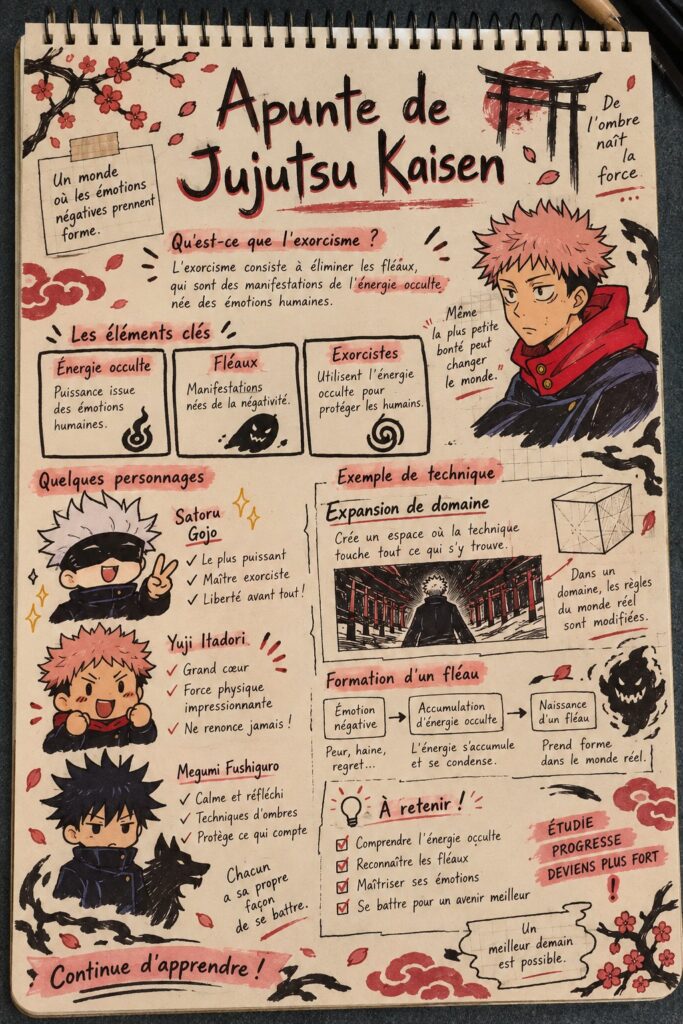 Apunte de
Jujutsu Kaisen
De
l'ombre
naît
la
force
Un monde
où les émotions
négatives prennent
forme.
Qu'est-ce que l'exorcisme ?
L'exorcisme consiste à éliminer les fléaux,
qui sont des manifestations de l'énergie occulte
née des émotions humaines.
Même
la plus petite
bonté peut
changer
le monde.
Les éléments clés
Énergie occulte
Puissance issue
des émotions
humaines.
Fléaux
Manifestations
nées de la négativité.
Exorcistes
Utilisent l'énergie
occulte pour
protéger les humains.
Quelques personnages
Satoru
Gojo
Le plus puissant
Maître exorciste
Liberté avant tout !
Yuji Itadori
Grand cœur
Force physique
impressionnante
Ne renonce jamais !
Megumi Fushiguro
Calme et réfléchi
Techniques d'ombres
Protège ce qui compte
Chacun
a sa propre
façon
de se battre.
Exemple de technique
Expansion de domaine
Crée un espace où la technique
touche tout ce qui s'y trouve.
Dans un
domaine, les règles
du monde réel
sont modifiées.
Formation d'un fléau
Émotion
négative
Accumulation
d'énergie occulte
Naissance
d'un fléau
Peur, haine,
regret...
L'énergie s'accumule
et se condense.
Prend forme
dans le monde réel.
À retenir !
Comprendre l'énergie occulte
Reconnaître les fléaux
Maîtriser ses émotions
Se battre pour un avenir meilleur
ÉTUDIE
PROGRESSE
DEVIENS PLUS FORT
!
Un
meilleur demain
est possible.
Continue d'apprendre !